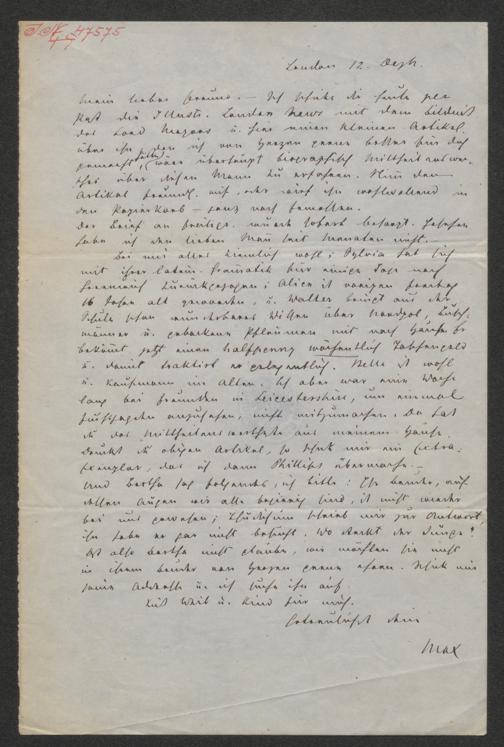 I.N. 47575
London 12. Dezb.
Mein lieber Freund. — Ich schicke Dir heute per
Post die Illustr. London News mit dem Bildniß
des Lord Mayors u. hier einen kleinen Artikel
über ihn, den ich von Herzen gerne besser für Dich
gemacht hätte, wäre überhaupt biographisch Mittheilenswer-
thes über diesen Mann zu erfahren. Nim den
Artikel freundl. auf, oder wirf ihn wohlwollend in
den Papierkorb — ganz nach
Der Brief an Freiligr. wurde sofort besorgt. Gesehen
habe ich den lieben Man seit Monaten nicht. —
Bei mir alles ziemlich wohl; Sylvia hat sich
mit ihrer latein. Gramatik für einige Tage nach
zurückgezogen; Alice ist vorigen Freitag
16 Jahre alt geworden, u. Walter bringt aus der
Schule schon wunderbares Wißen über Nordpol,
männer u. gebackene Pflaumen mit nach Hause. Er
bekomt jetzt einen halfpenny wöchentlich Taschengeld
u. damit traktirt er gelegentlich. Nelly ist wohl
u. Kaufmann im Alten. Ich aber war eine Woche
lang bei Freunden in Leicestershire, um einmal
Fuchsjagden anzusehen, nicht mitzumachen. Da hast
Du das Mittheilenswertheste aus meinem Hause.
Druckst Du obigen Artikel, so schick mir ein Extra-
Exemplar, das ich dann Phillips übermache. —
Und Bertha sag folgendes, ich bitte: Ihr Bruder, auf
dessen Augen wir alle begierig sind, ist nicht wieder
bei uns gewesen; schuldig blieb mir zur Antwort,
ihn habe er gar nicht besucht. Wo steckt der Junge?
Daß also Bertha nicht glaube, wir möchten sie nicht
in ihrem Bruder von Herzen gerne ehren. Schick mir
seine Adresse u. ich suche ihn auf.
Küß Weib u. Kind für mich.
Dein
Max